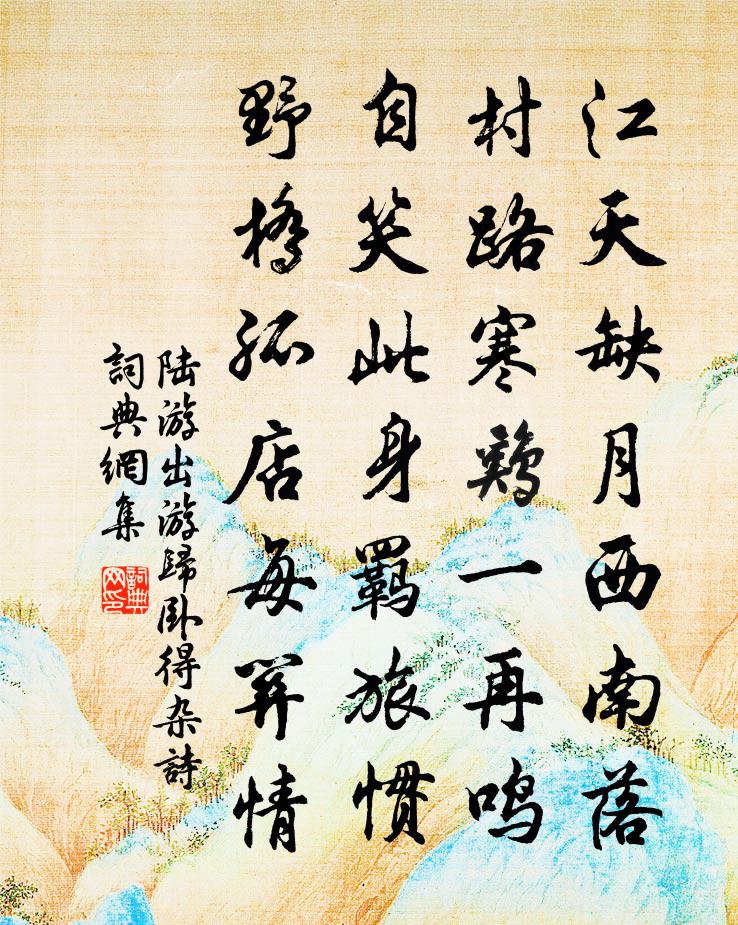 江天缺月西南落
村路寒鷄一再鸣
自笑此身羈旅慣
野橋孤店每関情
陆游出游歸卧得杂詩
詞典網集